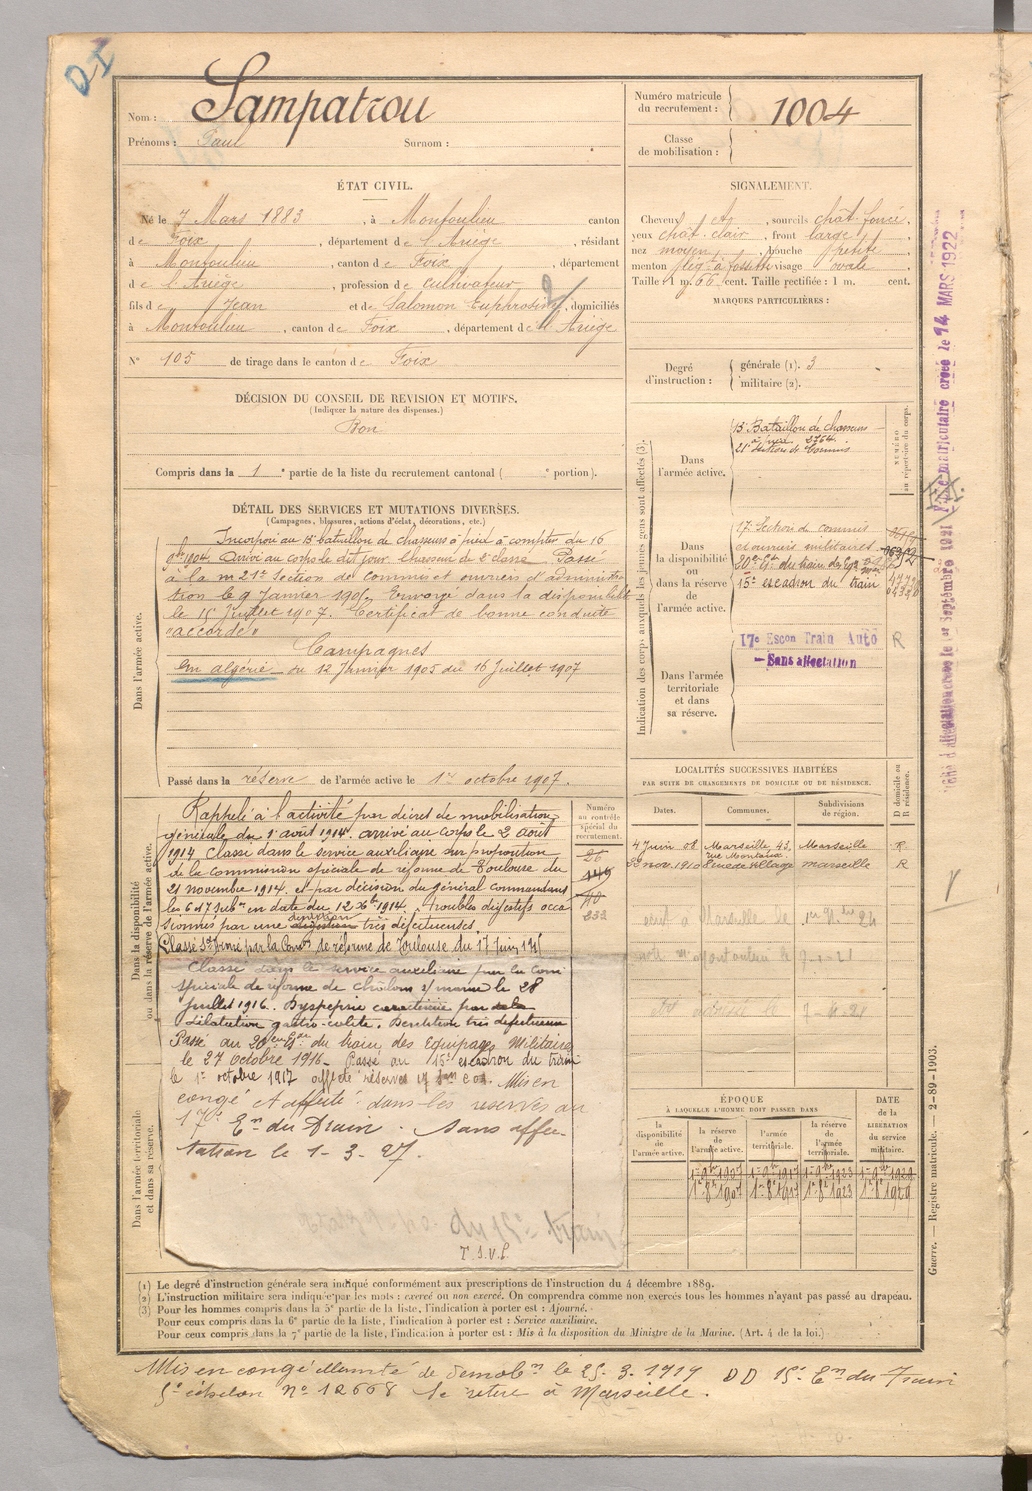 Nom : Sampatrou
Prénoms : Paul Surnom :
Numéro matricule du recrutement : 1004
Classe de mobilisation :
ÉTAT CIVIL.
Né le 7 Mars 1883, à Montoulieu canton
de Foix, département de l'Ariège, résidant
à Montoulieu, canton de Foix, département
de l'Ariège, profession de cultivateur
fils de Jean et de Salomon Euphrosine, domiciliés
à Montoulieu, canton de Foix, département de l'Ariège
N° 105 de tirage dans le canton de Foix
SIGNALEMENT.
Cheveux et sourcils chât. foncé,
yeux chât. clair, front large,
nez moyen, bouche petite
menton lég à fossette visage ovale
Taille : 1 m. 66 cent. Taille rectifiée : 1 m. cent.
MARQUES PARTICULIÈRES :
DÉCISION DU CONSEIL DE REVISION ET MOTIFS.
(Indiquer la nature des dispenses.)
Bon
Compris dans la 1e partie de la liste du recrutement cantonal ( e portion).
Degré d'instruction :
générale (1). 3
militaire (2).
DÉTAIL DES SERVICES ET MUTATIONS DIVERSES.
(Campagnes, blessures, actions d'éclat, décorations, etc.)
Dans l'armée active.
Incorporé au 15e bataillon de chasseurs à pied à compter du 16
9bre 1904. Arrivé au corps le dit jour. Chasseur de 2e classe. Passé
à la 21e Section de Commis et ouvriers d'administra
tion le 9 Janvier 1905. Envoyé dans la disponibilité
le 15 Juillet 1907. Certificat de bonne conduite
"accordé"
Campagnes
En algérie du 12 Janvier 1905 au 16 Juillet 1907
Passé dans la réserve de l'armée active le 1er octobre 1907.
Indication des corps auxquels les jeunes gens sont affectés (3).
NUMÉRO au répertoire du corps.
Dans l'armée active.
15e Bataillon de chasseurs
à pied 2764
21e Section de Commis
Dans la disponibilité ou dans la réserve de l'armée active.
17e Section de commis
et ouvriers militaires
20e du train des Eq.
15e escadron du train
17e Escon Train Auto R
Sans affectation
Dans l'armée territoriale et dans sa réserve.
Dans la disponibilité ou dans la réserve de l'armée active.
Rappelé à l'activité par décret de mobilisation
générale du 1er août 1914. arrivé au corps le 2 août
1914 Classé dans le service auxiliaire sur proposition
de la commission spéciale de réforme de Toulouse du
21 novembre 1914. et par décision du général commandant
les 6 et 7 Subon en date du 12 Xbre 1914. troubles digestifs occa
sionnés par une dentition très défectueuse.
Classé Sce armé par la Con de réforme de Toulouse du 17 Juin 1915
Classé dans le service auxiliaire par la Com
spéciale de réforme de Châlons s/ marne le 28
juillet 1916. Dyspepsie
dilatation gastro-colite. Dentition très défectueuse
Passé au 20e du train des Equipages Militaires
le 27 octobre 1916. Passé au 15e escadron du train
le 1er octobre 1917 Mis en
congé et affecté dans les réserves au
17e En du Train. Sans affec-
tation le 1-3-27.
du 15e train
T.S.V.P.
Dans l'armée territoriale et dans sa réserve.
Numéro au contrôle spécial du recrutement.
26
149
110
233
LOCALITÉS SUCCESSIVES HABITÉES
PAR SUITE DE CHANGEMENTS DE DOMICILE OU DE RÉSIDENCE.
Dates. Communes. Subdivisions de région. D domicile ou R résidence.
4 Juin 08 Marseille, 43, Marseille R
nov. 1910 marseille R
ÉPOQUE
À LAQUELLE L'HOMME DOIT PASSER DANS
la disponibilité de l'armée active. la réserve de l'armée active. l'armée territoriale. la réserve de l'armée territoriale.
DATE de la LIBÉRATION du service militaire.
1er 9bre 1907 1er 9bre 1917 1er 9bre 1923 1er 9bre 1929
1er 8e 1907 1er 8e 1917 1er 8e 1923 1er 8e 1929
(1) Le degré d'instruction générale sera indiqué conformément aux prescriptions de l'instruction du 4 décembre 1889.
(2) L'instruction militaire sera indiquée par les mots : exercé ou non exercé. On comprendra comme non exercés tous les hommes n'ayant pas passé au drapeau.
(3) Pour les hommes compris dans la 5e partie de la liste, l'indication à porter est : Ajourné.
Pour ceux compris dans la 6e partie de la liste, l'indication à porter est : Service auxiliaire.
Pour ceux compris dans la 7e partie de la liste, l'indication à porter est : Mis à la disposition du Ministre de la Marine. (Art. 4 de la loi.)
Mis en congé illimité de démobon le 25.3.1919 DD 15e En du Train
5e échelon N° 12668 Se retire à Marseille.
Guerre. — Registre matricule. — 2-89-1903.
matriculaire créée le 14 MARS 1922